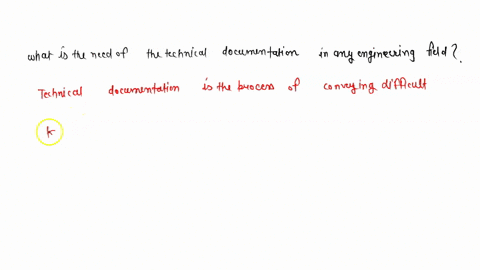 what is the need of the technical documentation in any engineering field?.
Technical documentation is the process of conveying difficult
k